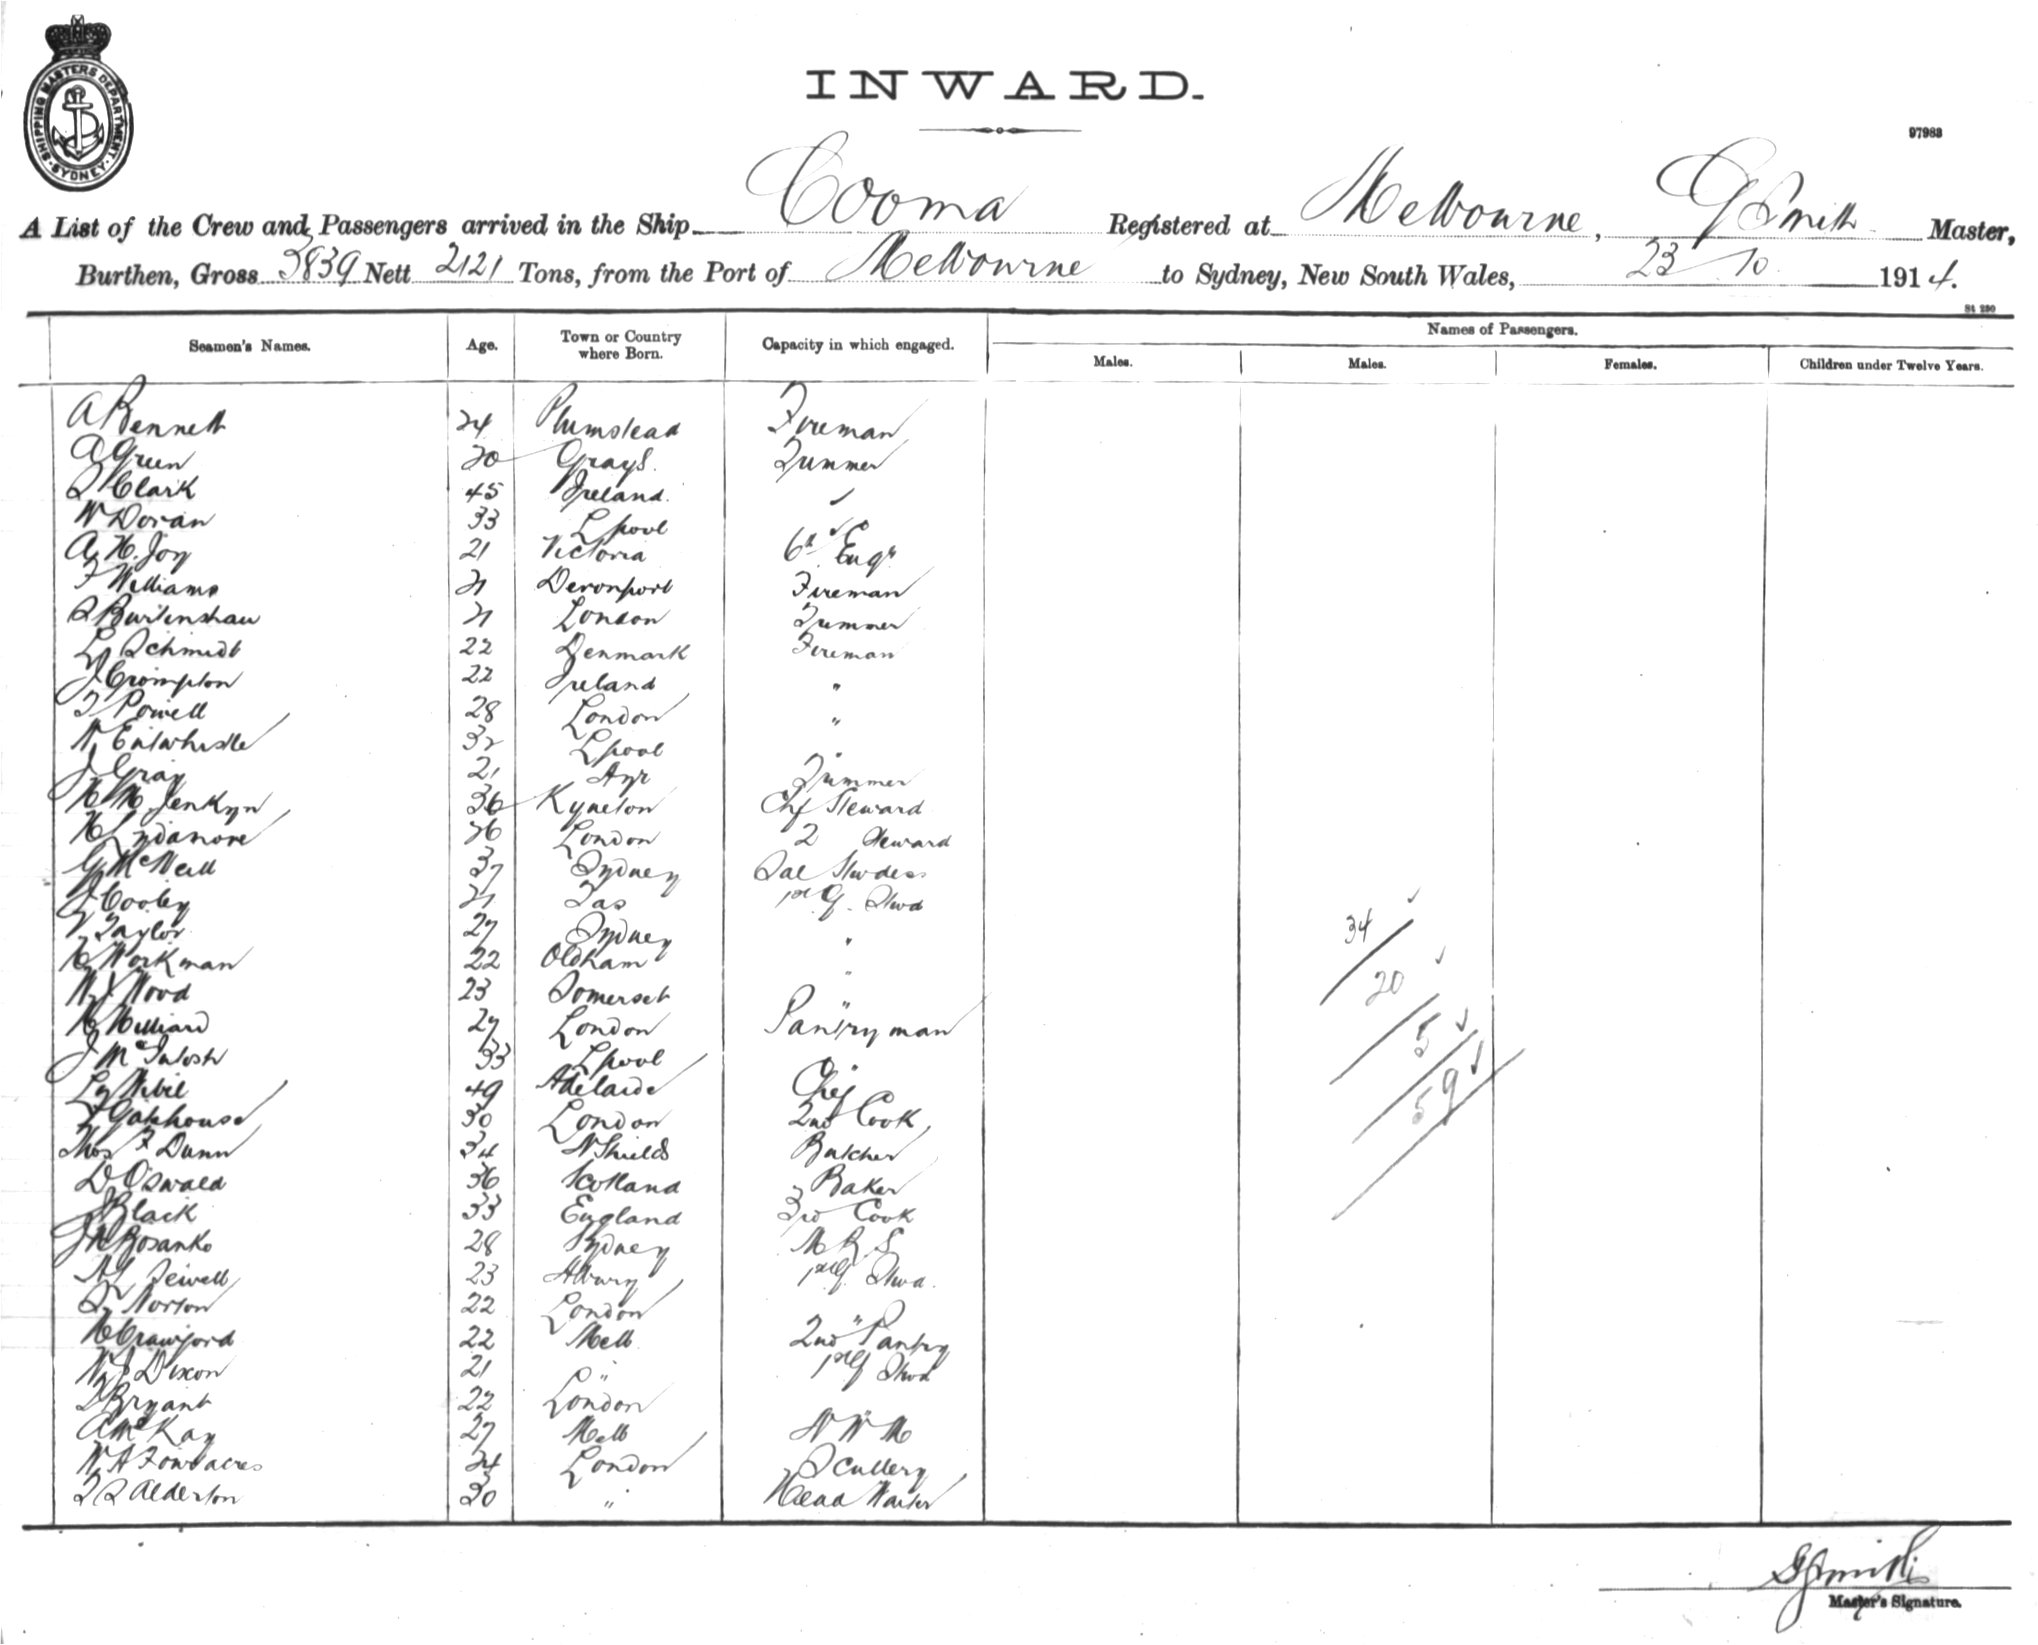 SHIPPING MASTERS DEPARTMENT. SYDNEY
INWARD.
97983
A List of the Crew and Passengers arrived in the Ship Cooma Registered at Melbourne, G Smith Master,
Burthen, Gross 3839 Nett 2121 Tons, from the Port of Melbourne to Sydney, New South Wales, 23/10 1914.
St 230
Seamen's Names. Age. Town or Country where Born. Capacity in which engaged. Names of Passengers.
Males. Males. Females. Children under Twelve Years.
A Bennett 24 Plumstead Fireman
A Green 30 Grays Trimmer
T Clark 45 Ireland "
W Doran 33 Lpool "
A H. Joy 21 Victoria 6th Engr
F Williams 21 Devonport Fireman
Burtenshaw 21 London Trimmer
L Schmidt 22 Denmark Fireman
J Crompton 22 Ireland "
T Powell 28 London "
W Entwhistle 32 Lpool "
J Gray 21 Ayr Trimmer
H M Jenkyn 36 Kyneton Chf Steward
H Lydamore 26 London 2 Steward
G McNeill 37 Sydney Sal Stwdess
J Cooley 21 Tas Stwd
V Taylor 27 Sydney "
H Workman 22 Oldham "
W J Wood 23 Somerset "
H Hilliard 27 London Pantryman
J McIntosh 33 Lpool "
L 49 Adelaide Chef
F Gatehouse 30 London 2nd Cook
Thos F Dunn 34 N Shields Butcher
D Oswald 36 Scotland Baker
J Black 33 England 3rd Cook
J H Bosanko 28 Sydney M R S
Sewell 23 Albury Stwd.
S Norton 22 London "
H Crawford 22 Melb 2nd Pantry
W J Dixon 21 " Stwd
Bryant 22 London "
A McKay 27 Melb
W A Fouracres 24 London Scullery
Alderton 30 " Head Waiter
34
20
5
59
G Smith
Master's Signature.